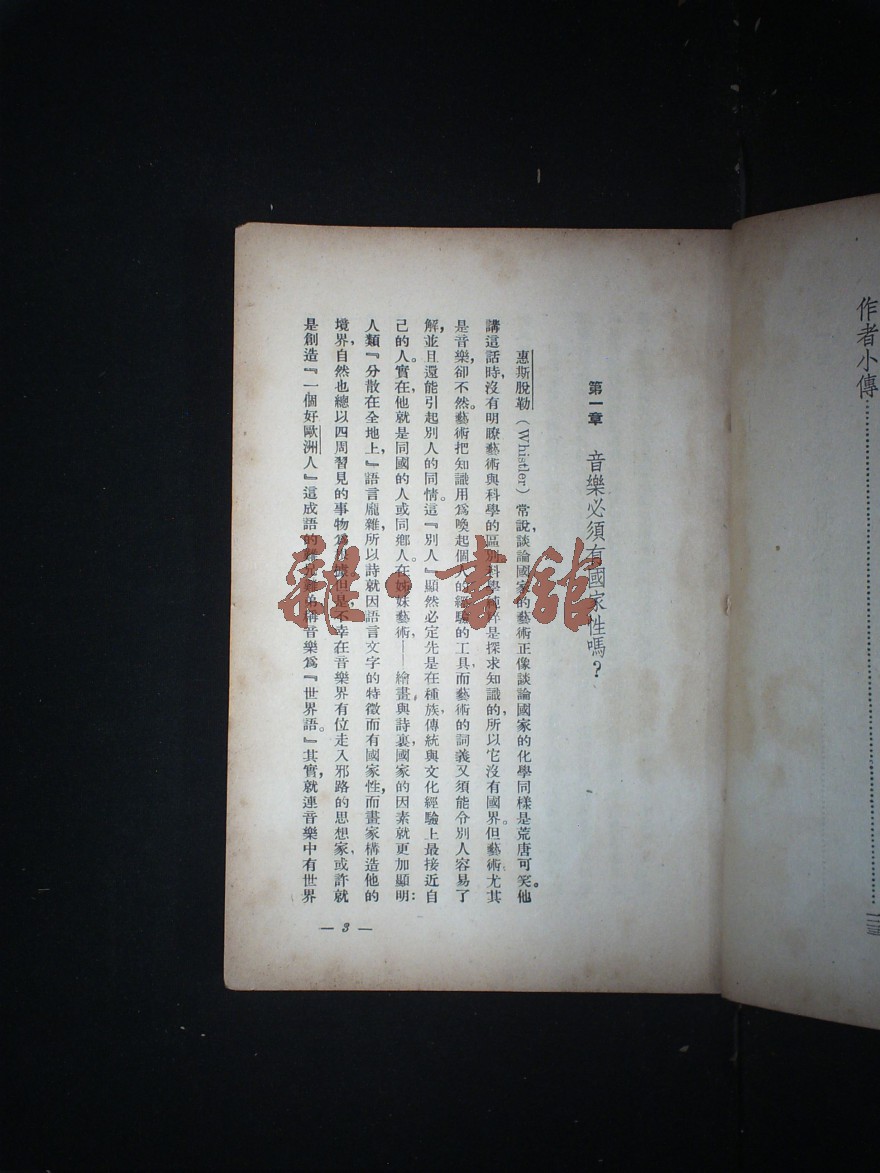 作者小傳
第一章 音樂必須有國家性嗎？
惠斯脫勒（Whistler）常說，談論國家的藝術正像談論國家的化學同樣是荒唐可笑。他
講這話時，沒有明瞭藝術與科學的區別。科學純粹是探求知識的，所以它沒有國界。但藝術尤其
是音樂，卻不然。藝術把知識用爲喚起個人的經驗的工具，而藝術的詞義又須能令別人容易了
解，並且還能引起別人的同情。這『別人』顯然必定先是在種族、傳統與文化經驗上最接近自
己的人。實在，他就是同國的人或同鄉人。在姊妹藝術——繪畫與詩裏，國家的因素就更加顯明：
人類『分散在全地上，』語言龐雜，所以詩就因語言文字的特徵而有國家性，而畫家構造他的
境界，自然也總以四周習見的事物爲根據。但是，不幸在音樂界有位走入邪路的思想家，或許就
是創造『一個好歐洲人』這成語的 稱音樂爲『世界語。』其實，就連音樂中有世界
— 3 —
雜·書館